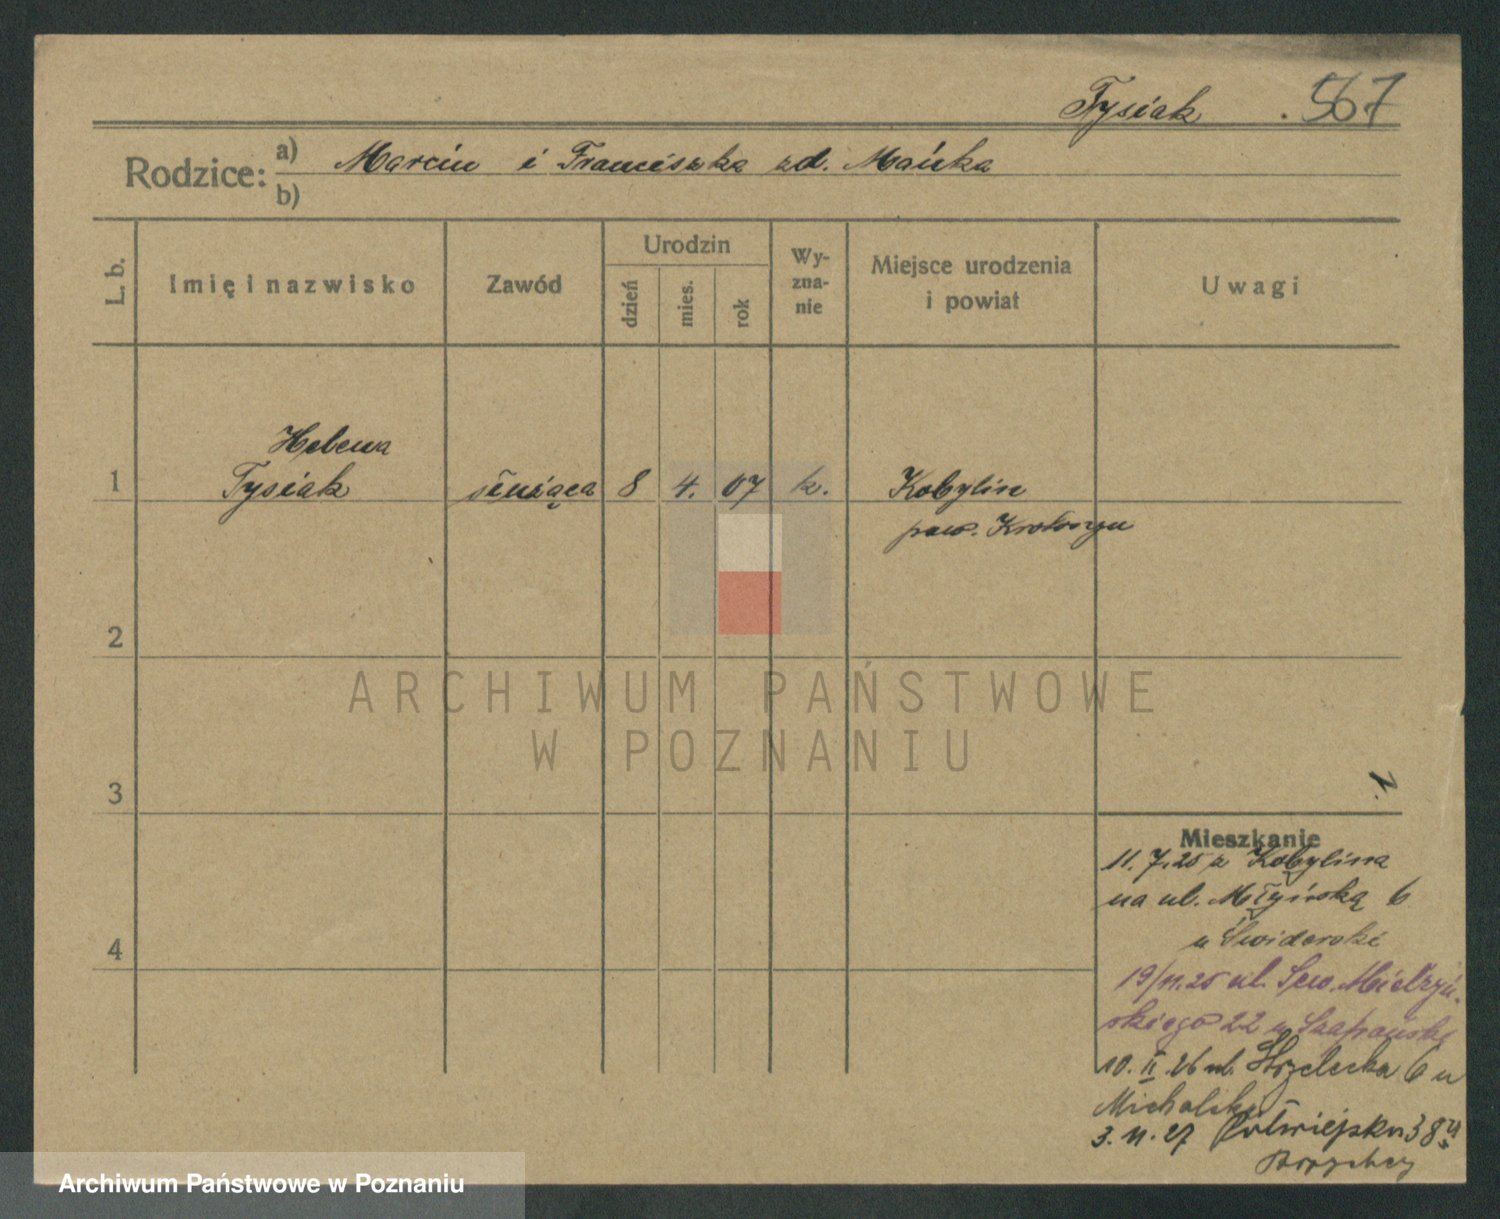 Tysiak . 567
Rodzice: a) Marcin i Franciszka zd. Mańka
b)
L. b. Imię i nazwisko Zawód Urodzin dzień mies. rok Wy-zna-nie Miejsce urodzenia i powiat Uwagi
Helena
1 Tysiak służąca 8 4. 07 k. Kobylin
pow. Krotoszyn
2
ARCHIWUM PAŃSTWOWE
W POZNANIU
3
Mieszkanie
11.7.25 z Kobylina
na ul. Młyńską 6
u Świderski
4
19/11.25 ul. Sew. Mielżyń-
skiego 22 u
10. II. 26 ul. Strzelecka 6 u
3. 11. 27 Półwiejska 38 u
Archiwum Państwowe w Poznaniu